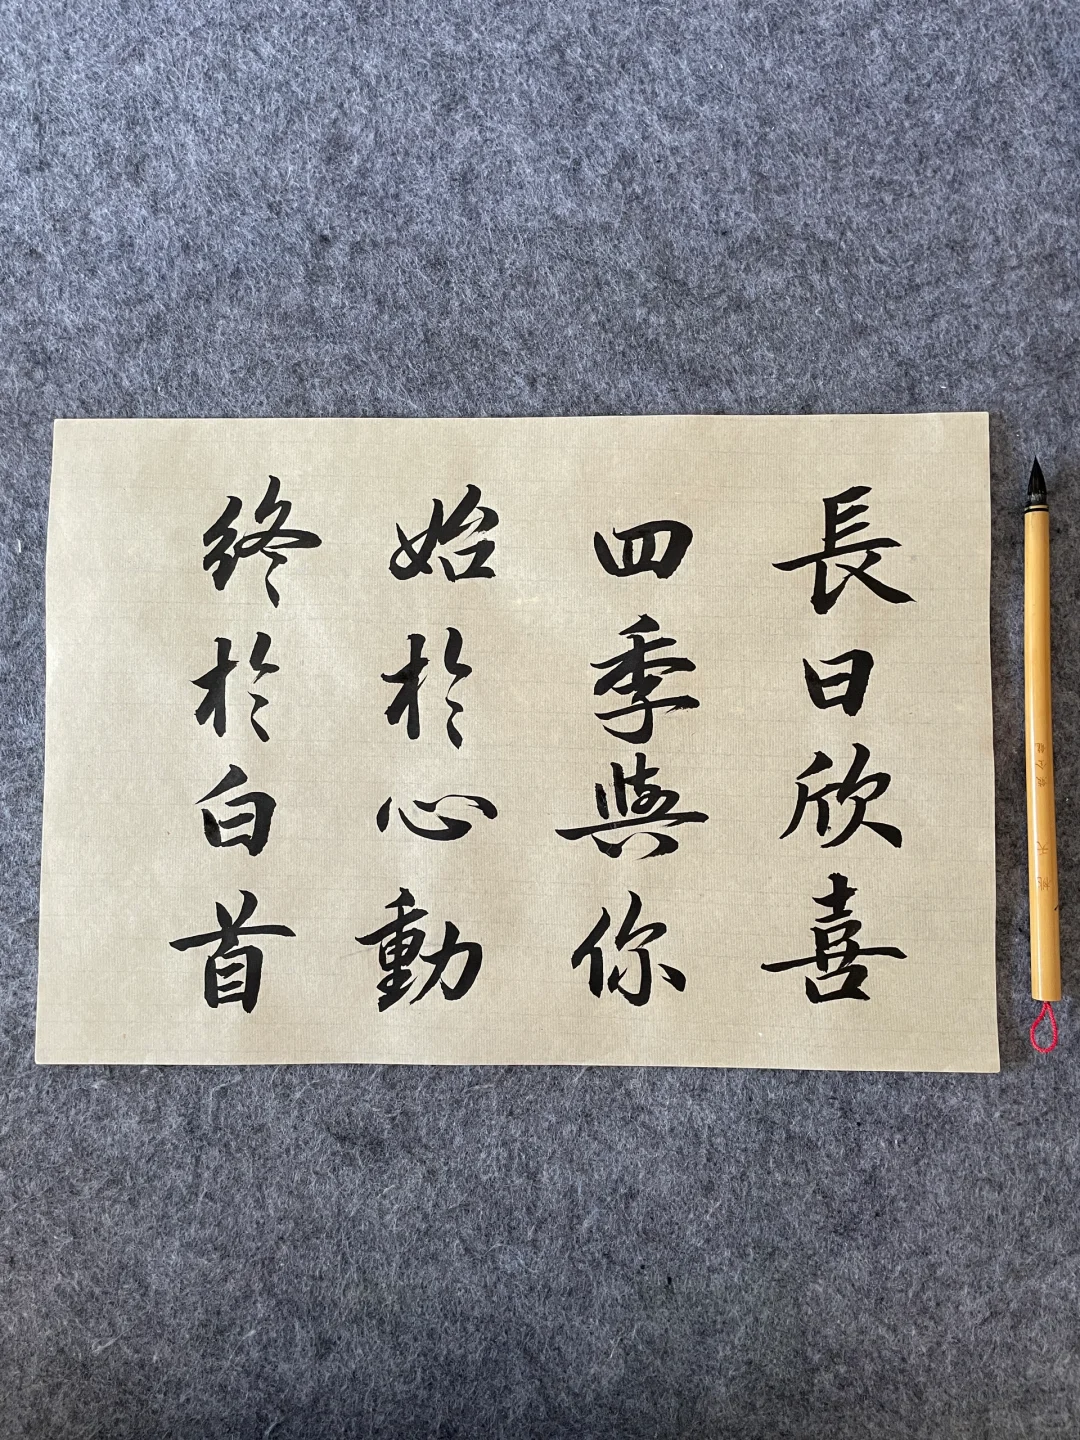 長日欣喜
四季與你
始於心動
終於白首